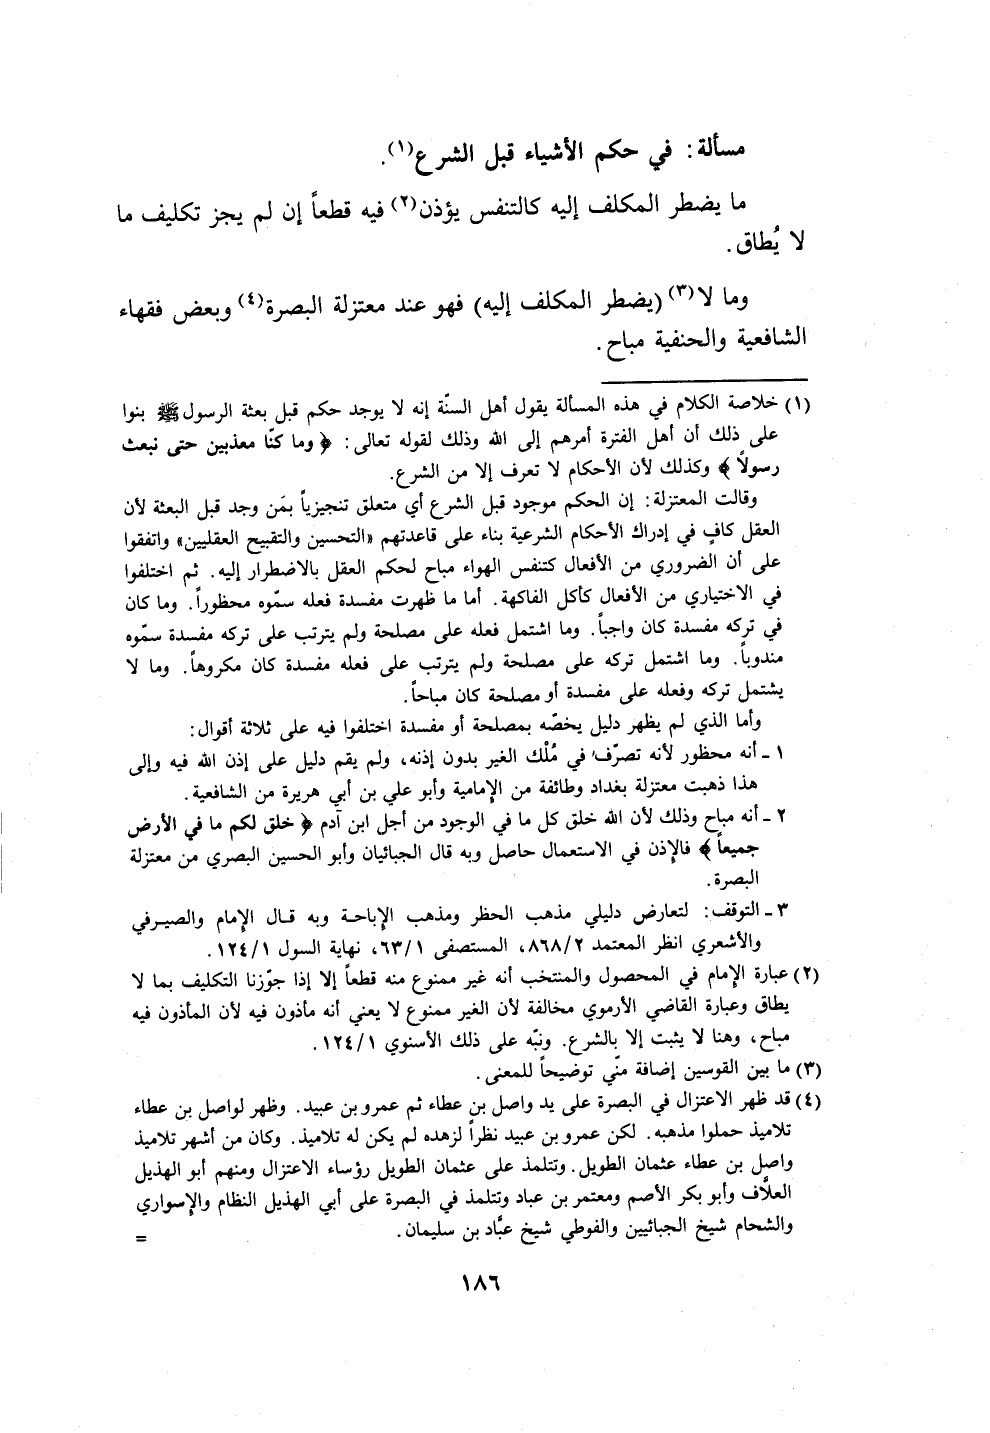 مسألة: في حكم الأشياء قبل الشرع(١).
ما يضطر المكلف إليه كالتنفس يؤذن(٢) فيه قطعاً إن لم يجز تكليف ما
لا يُطاق.
وما لا(٣) (يضطر المكلف إليه) فهو عند معتزلة البصرة(٤) وبعض فقهاء
الشافعية والحنفية مباح.
(١) خلاصة الكلام في هذه المسألة يقول أهل السنّة إنه لا يوجد حكم قبل بعثة الرسول ﷺ بنوا
على ذلك أن أهل الفترة أمرهم إلى الله وذلك لقوله تعالى: ﴿ وما كنّا معذبين حتى نبعث
رسولاً ﴾ وكذلك لأن الأحكام لا تعرف إلا من الشرع.
وقالت المعتزلة: إن الحكم موجود قبل الشرع أي متعلق تنجيزياً بمَن وجد قبل البعثة لأن
العقل كافٍ في إدراك الأحكام الشرعية بناء على قاعدتهم «التحسين والتقبيح العقليين» واتفقوا
على أن الضروري من الأفعال كتنفس الهواء مباح لحكم العقل بالاضطرار إليه. ثم اختلفوا
في الاختياري من الأفعال كأكل الفاكهة. أما ما ظهرت مفسدة فعله سمّوه محظوراً. وما كان
في تركه مفسدة كان واجباً. وما اشتمل فعله على مصلحة ولم يترتب على تركه مفسدة سمّوه
مندوباً. وما اشتمل تركه على مصلحة ولم يترتب على فعله مفسدة كان مكروهاً. وما لا
يشتمل تركه وفعله على مفسدة أو مصلحة كان مباحاً.
وأما الذي لم يظهر دليل يخصّه بمصلحة أو مفسدة اختلفوا فيه على ثلاثة أقوال:
١ ـ أنه محظور لأنه تصرّف في مُلْك الغير بدون إذنه، ولم يقم دليل على إذن الله فيه وإلى
هذا ذهبت معتزلة بغداد وطائفة من الإمامية وأبو علي بن أبي هريرة من الشافعية.
٢ ـ أنه مباح وذلك لأن الله خلق كل ما في الوجود من أجل ابن آدم ﴿ خلق لكم ما في الأرض
جميعاً ﴾ فالإذن في الاستعمال حاصل وبه قال الجبائيان وأبو الحسين البصري من معتزلة
البصرة.
٣ ـ التوقف: لتعارض دليلي مذهب الحظر ومذهب الإباحة وبه قال الإمام والصيرفي
والأشعري انظر المعتمد ٨٦٨/٢، المستصفى ٦٣/١، نهاية السول ١٢٤/١.
(٢) عبارة الإمام في المحصول والمنتخب أنه غير ممنوع منه قطعاً إلا إذا جوّزنا التكليف بما لا
يطاق وعبارة القاضي الأرموي مخالفة لأن الغير ممنوع لا يعني أنه مأذون فيه لأن المأذون فيه
مباح، وهنا لا يثبت إلا بالشرع. ونبّه على ذلك الأسنوي ١٢٤/١.
(٣) ما بين القوسين إضافة منّي توضيحاً للمعنى.
(٤) قد ظهر الاعتزال في البصرة على يد واصل بن عطاء ثم عمرو بن عبيد. وظهر لواصل بن عطاء
تلاميذ حملوا مذهبه. لكن عمرو بن عبيد نظراً لزهده لم يكن له تلاميذ. وكان من أشهر تلاميذ
واصل بن عطاء عثمان الطويل. وتتلمذ على عثمان الطويل رؤساء الاعتزال ومنهم أبو الهذيل
العلاَّف وأبو بكر الأصم ومعتمر بن عباد وتتلمذ في البصرة على أبي الهذيل النظام والإسواري
والشحام شيخ الجبائيين والفوطي شيخ عبَّاد بن سليمان. =
١٨٦